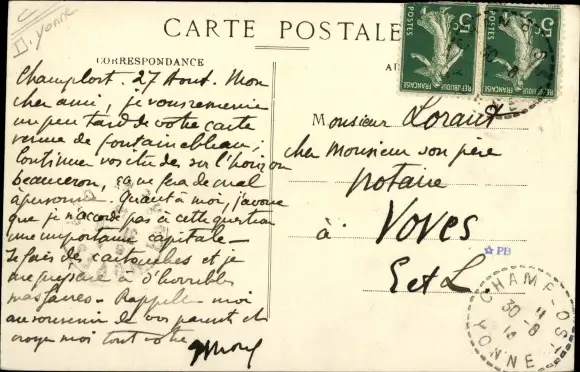 D. Yonne
CARTE POSTALE
CORRESPONDANCE
Champlost. 27 Aout. Mon
cher ami, je vous remercie
un peu tard de votre carte
venue de fontainebleau;
Continuez vos études sur l'horizon
beauceron, ça ne fera de mal
à personne. Quant à moi, j'avoue
que je n'accorde pas à cette question
une importance capitale—
Je fais des cartouches et je
me prépare à d'horribles
massacres— Rappelle moi
au souvenir de vos parents et
croyez moi tout votre
Monsieur Loraut
chez Monsieur son père
notaire
à Voves
E et L
5c 5c
POSTES POSTES
REPUBLIQUE FRANÇAISE
REPUBLIQUE FRANÇAISE
PB
CHAMPLOST
30-8
YONNE